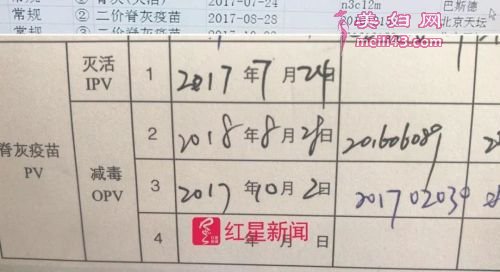 常规 2017-07-24 n3c12m 巴斯德
常规 ② 二价脊灰疫苗 2017-08-28 北京天坛
美妇网
meili43.com
脊灰疫苗
PV
灭活
IPV
1 2017年7月24日
减毒
OPV
2 2018年8月28日 201606089
3 2017年10月2日 20170203
4 年 月 日
红星新闻